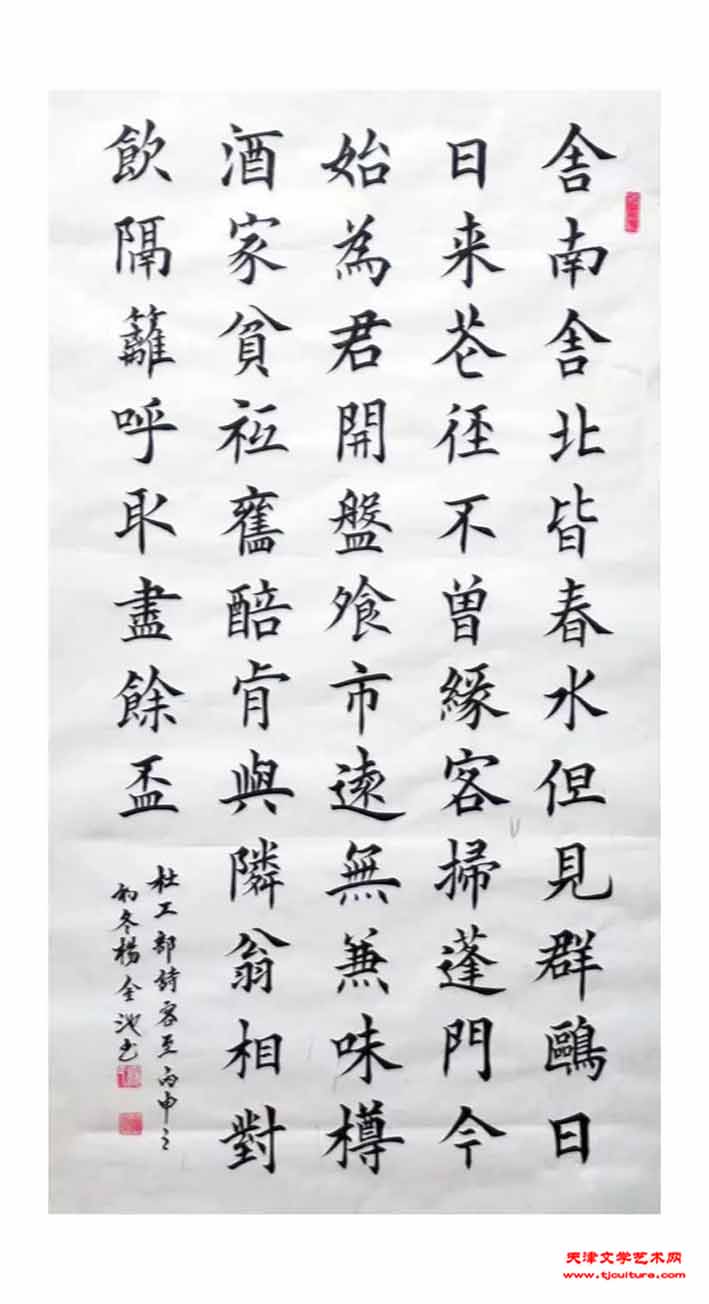 舍南舍北皆春水但見群鷗日
日来花徑不曾緣客掃蓬門今
始為君開盤飱市遠無兼味樽
酒家貧衹舊醅肯與隣翁相對
飲隔籬呼取盡餘盃
杜工部詩客至丙申之
初冬楊全池書
天津文学艺术网
www.tjculture.com